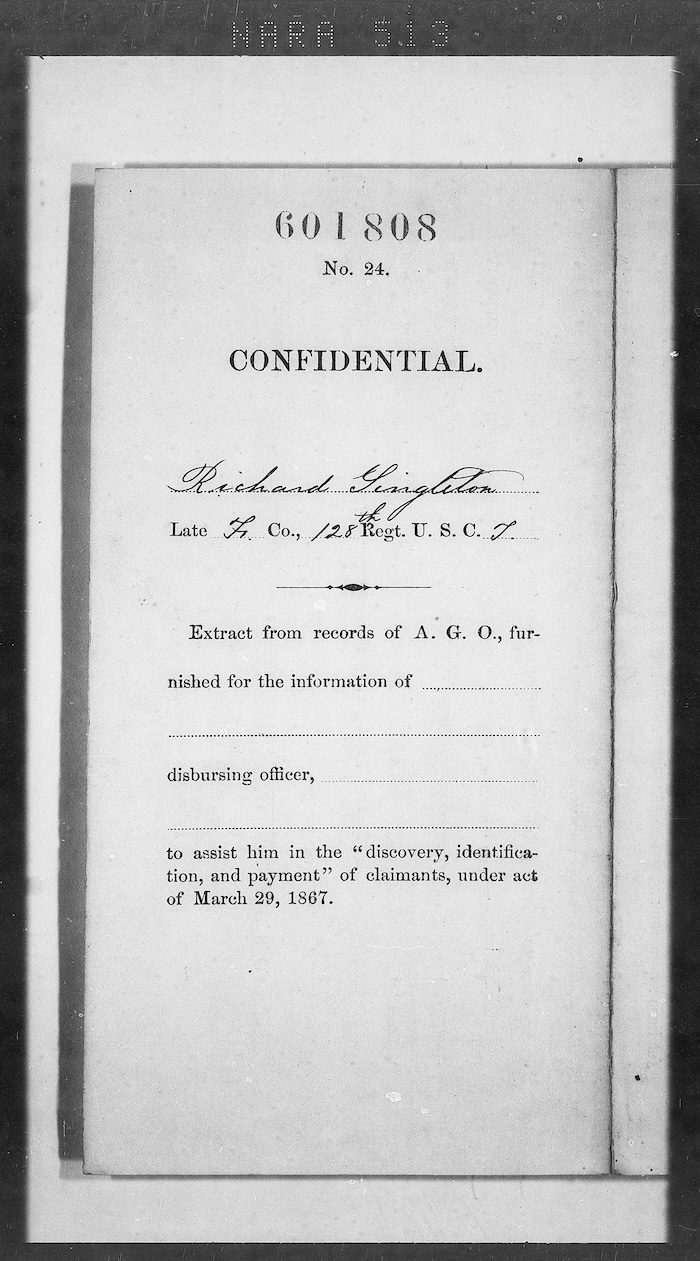 NARA 513
601808
No. 24.
CONFIDENTIAL.
Richard Singleton
Late F. Co., 128th Regt. U. S. C. T.
Extract from records of A. G. O., fur-
nished for the information of
disbursing officer,
to assist him in the “discovery, identifica-
tion, and payment” of claimants, under act
of March 29, 1867.